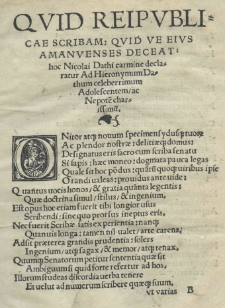 QVID REIPVBLI-
CAE SCRIBAM: QVID VE EIVS
AMANVENSES DECEAT:
hoc Nicolai Dathi carmine decla
ratur Ad Hieronymum Da
thum celeberrimum
Adolescentem/ac
Nepotē chari
ssimū.
atq; notum specimen
Ac plendor nostræ: delitięq; domus:
Designatus eris sacrorum scriba senatus
Si sapis: hæc moneo: dogmata pauca legas
Quale sit hoc pōdus: quāti quoq; viribus ipse
Grandi valeas: prouidus ante vide:
Quantus inest honos/& gratia quāta legentis:
Quæ doctrina simul/stilus/& ingenium,
Est opus hoc etiam fuerit tibi longior usus
Scribendi: sine quo prorsus ineptus eris,
Nec fuerit Scribæ satis expertentia: nanq;
Quamuis longa: tamen nil ualet/arte carens,
Adsit præterea grandis prudentia: soleis
Ingenium/atq; sagax/& memor/atq; tenax,
Quumq; Senatorum petitur sententia quæ sit
Ambiguum si quid forte refertur ad hos,
Illorum studeas discordia uerba tenere
Et uelut ad numerum scribere quæq; suum,
ut varias B